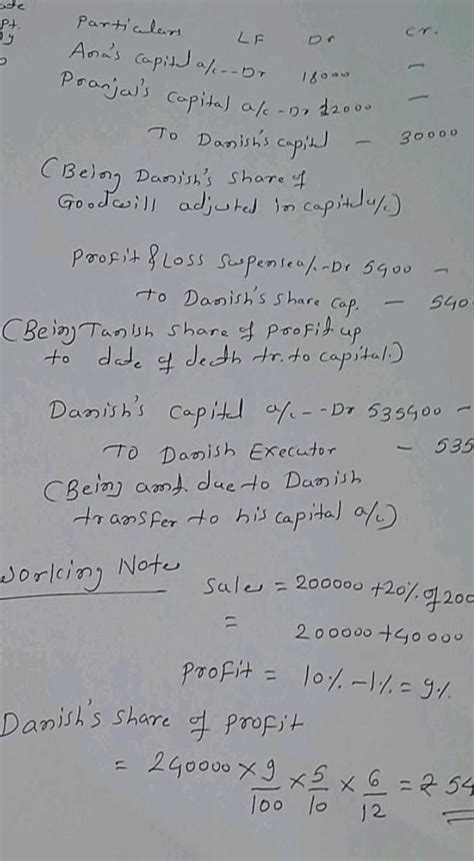 Date Particulars LF Dr Cr.
Ana's Capital a/c -- Dr 18000 —
Pranjal's Capital a/c - Dr 12000 —
To Danish's Capital — 30000
(Being Danish's Share of
Goodwill adjusted in capital a/c)
Profit & Loss Suspense a/c - Dr 5400 —
To Danish's Share Cap. — 540
(Being Tanish Share of Profit up
to date of decth tr. to capital.)
Danish's Capital a/c -- Dr 535400 —
To Danish Executor — 535
(Being amt. due to Danish
transfer to his capital a/c)
Working Note
Sales = 200000 + 20% of 200
= 200000 + 40000
Profit = 10% - 1% = 9%
Danish's Share of Profit
= 240000 × 9/100 × 5/10 × 6/12 = ₹ 54